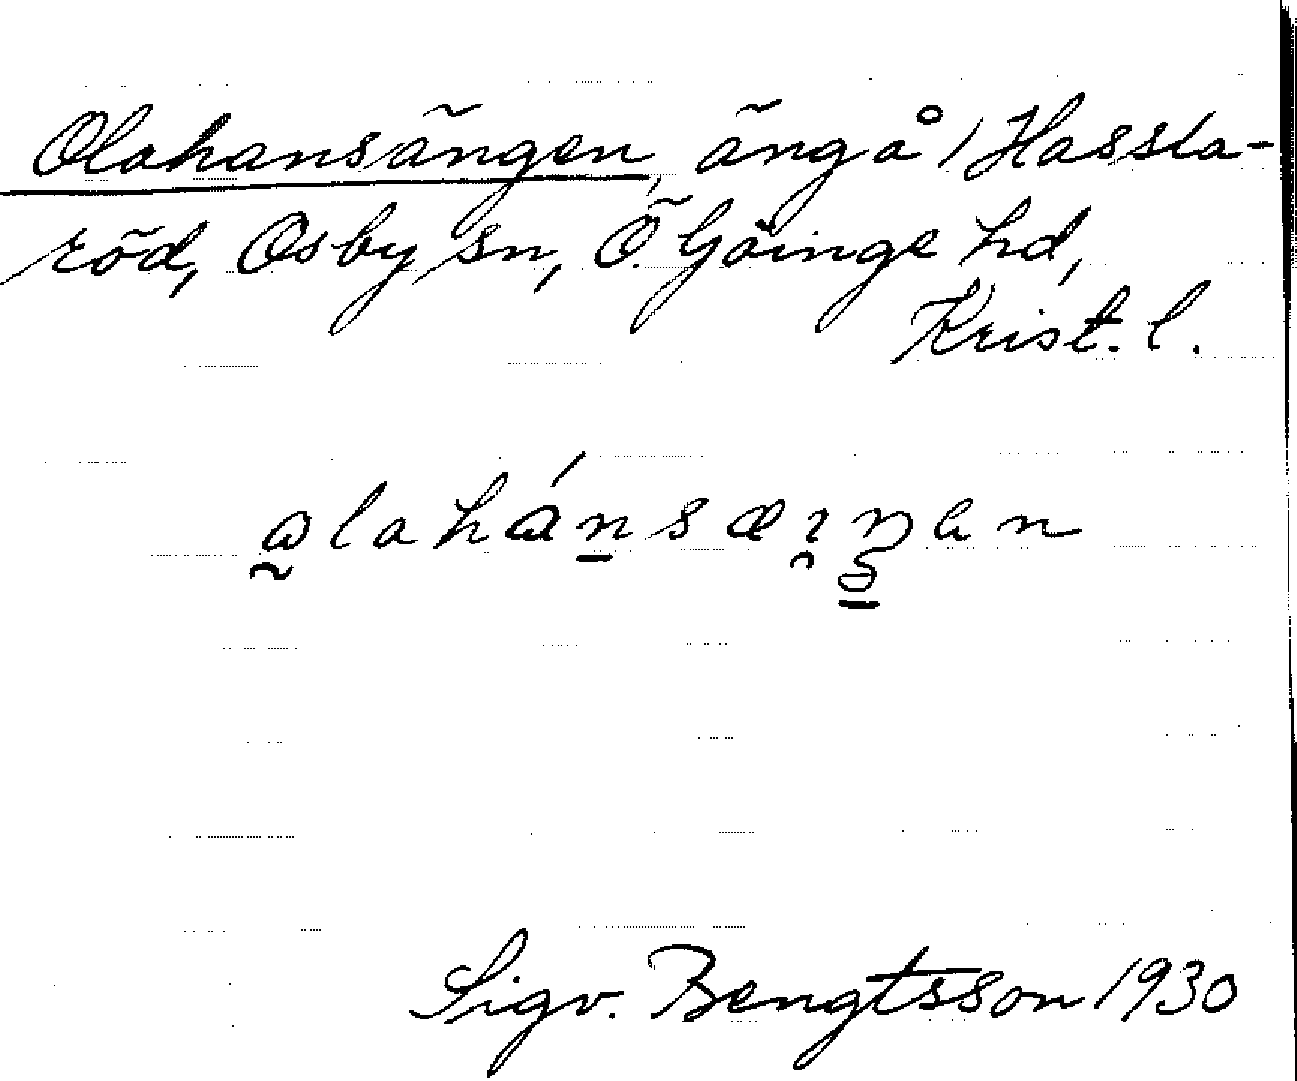 Olahansängen, äng å 1 Hassla-
röd, Osby sn, Ö. Göinge hd,
Krist. l.
Sigv. Bengtsson 1930